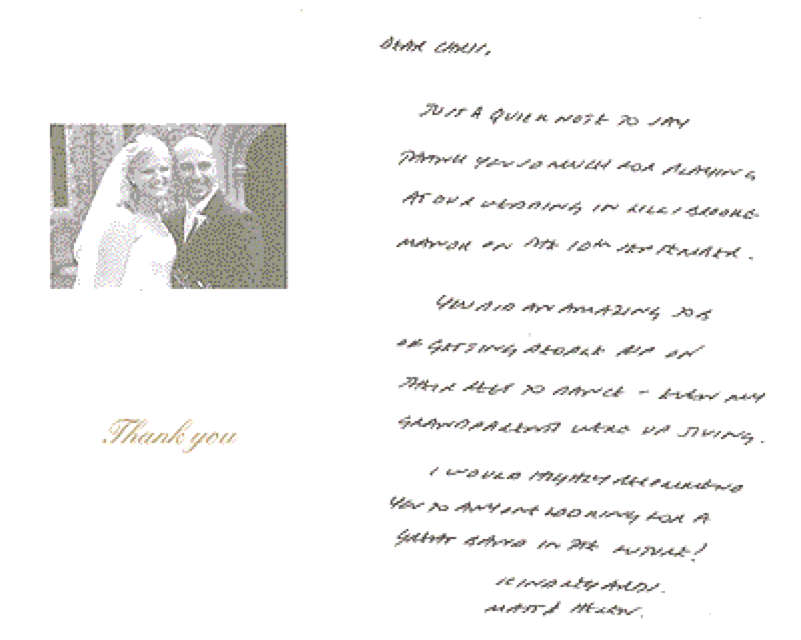 Thank you
DEAR CHRIS,
JUST A QUICK NOTE TO SAY
THANK YOU SO MUCH FOR PLAYING
AT OUR WEDDING IN LILLIBROOKE
MANOR ON THE 10TH SEPTEMBER.
YOU DID AN AMAZING JOB
OF GETTING PEOPLE UP ON
THEIR FEET TO DANCE - EVEN MY
GRANDPARENTS WERE UP JIVING.
I WOULD HIGHLY RECOMMEND
YOU TO ANYONE LOOKING FOR A
GREAT BAND IN THE FUTURE!
KIND REGARDS.
MATT & HELEN.